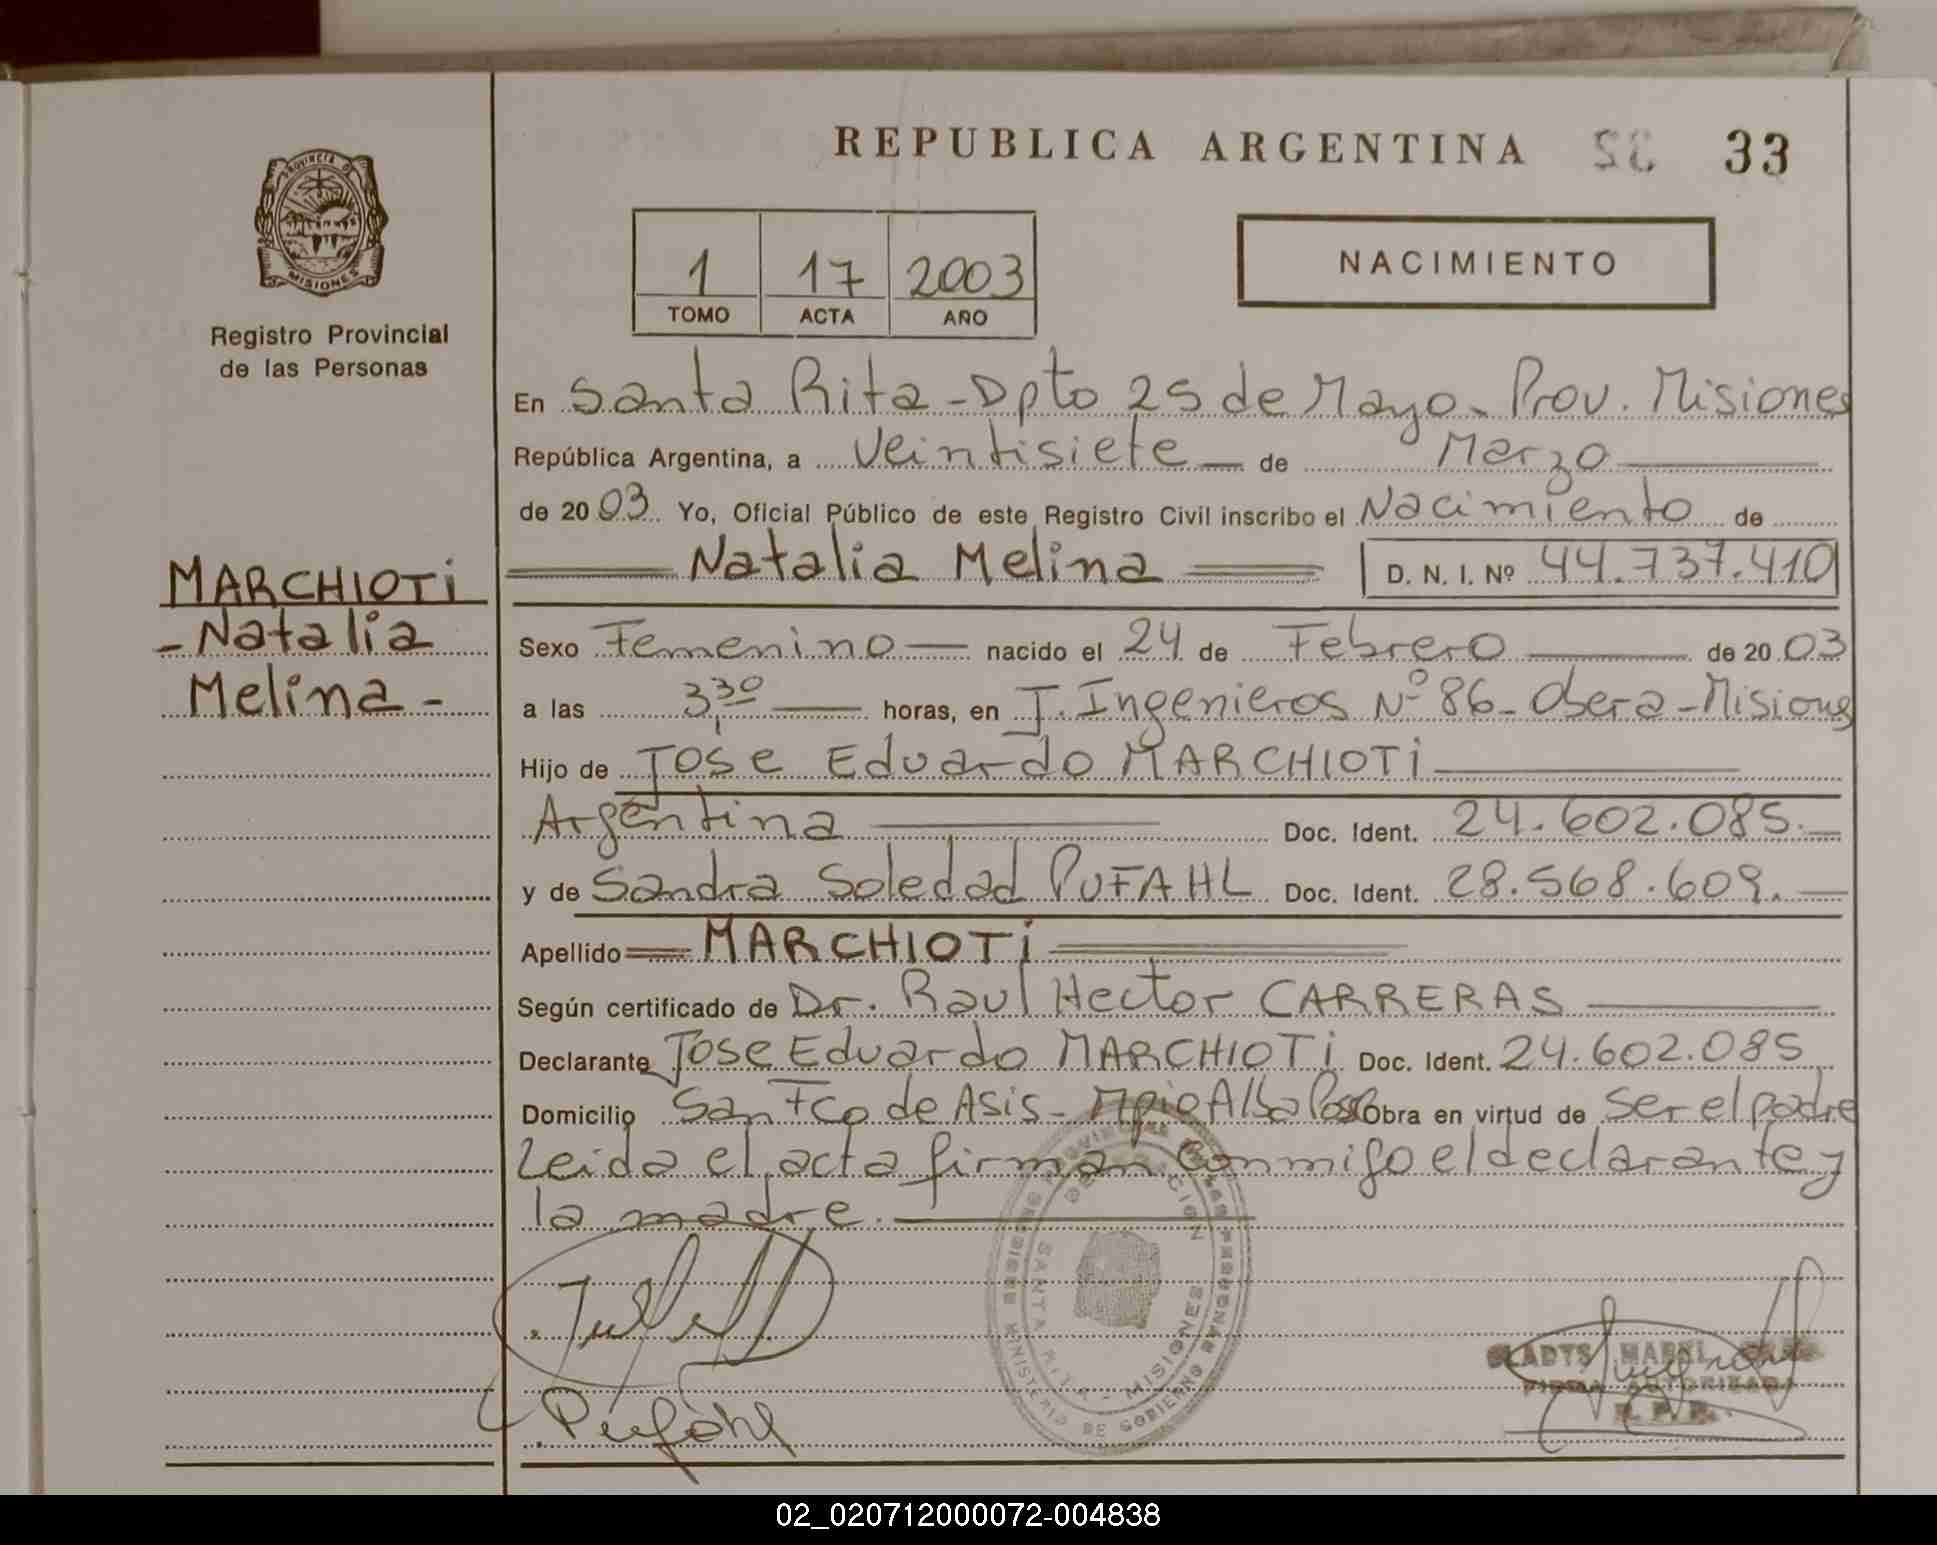 REPUBLICA ARGENTINA 33
PROVINCIA DE
MISIONES
Registro Provincial
de las Personas
1 17 2003
TOMO ACTA AÑO
NACIMIENTO
En Santa Rita - Dpto 25 de Mayo. Prov. Misiones
República Argentina, a Veintisiete de Marzo
de 2003 Yo, Oficial Público de este Registro Civil inscribo el Nacimiento de
Natalia Melina D. N. I. Nº 44.737.410
MARCHIOTi
- Natalia
Melina -
Sexo Femenino nacido el 24 de Febrero de 2003
a las 3,30 horas, en J. Ingenieros Nº 86 - Obera - Misiones
Hijo de Jose Eduardo MARCHIOTi
Argentina Doc. Ident. 24.602.085.
y de Sandra Soledad PUFAHL Doc. Ident. 28.568.609.
Apellido MARCHIOTi
Según certificado de Dr. Raul Hector CARRERAS
Declarante Jose Eduardo MARCHIOTi Doc. Ident. 24.602.085
Domicilio San Fco de Asis - Mpio Alba Posse Obra en virtud de ser el padre
Leida el acta firman conmigo el declarante y
la madre.
SANTA RITA - MISIONES
MINISTERIO DE GOBIERNO
Pufahl
GLADYS MABEL
FIRMA AUTORIZADA
R. P. P.
02_020712000072-004838